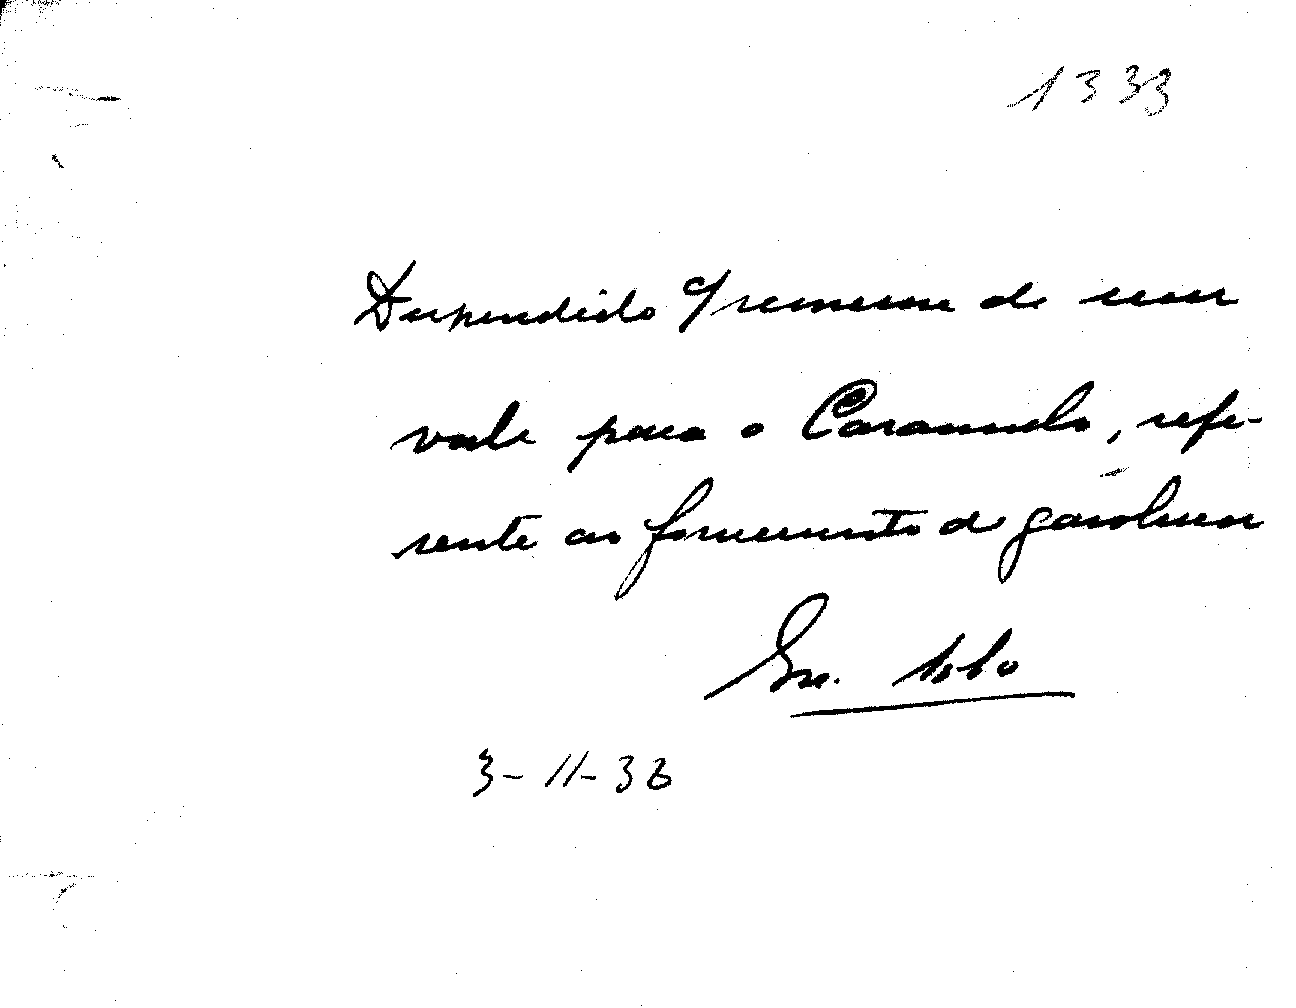 1333
Despendido c/ remessa de um
vale para o Caramulo, refe-
rente ao fornecimento de gasolina
3-11-36